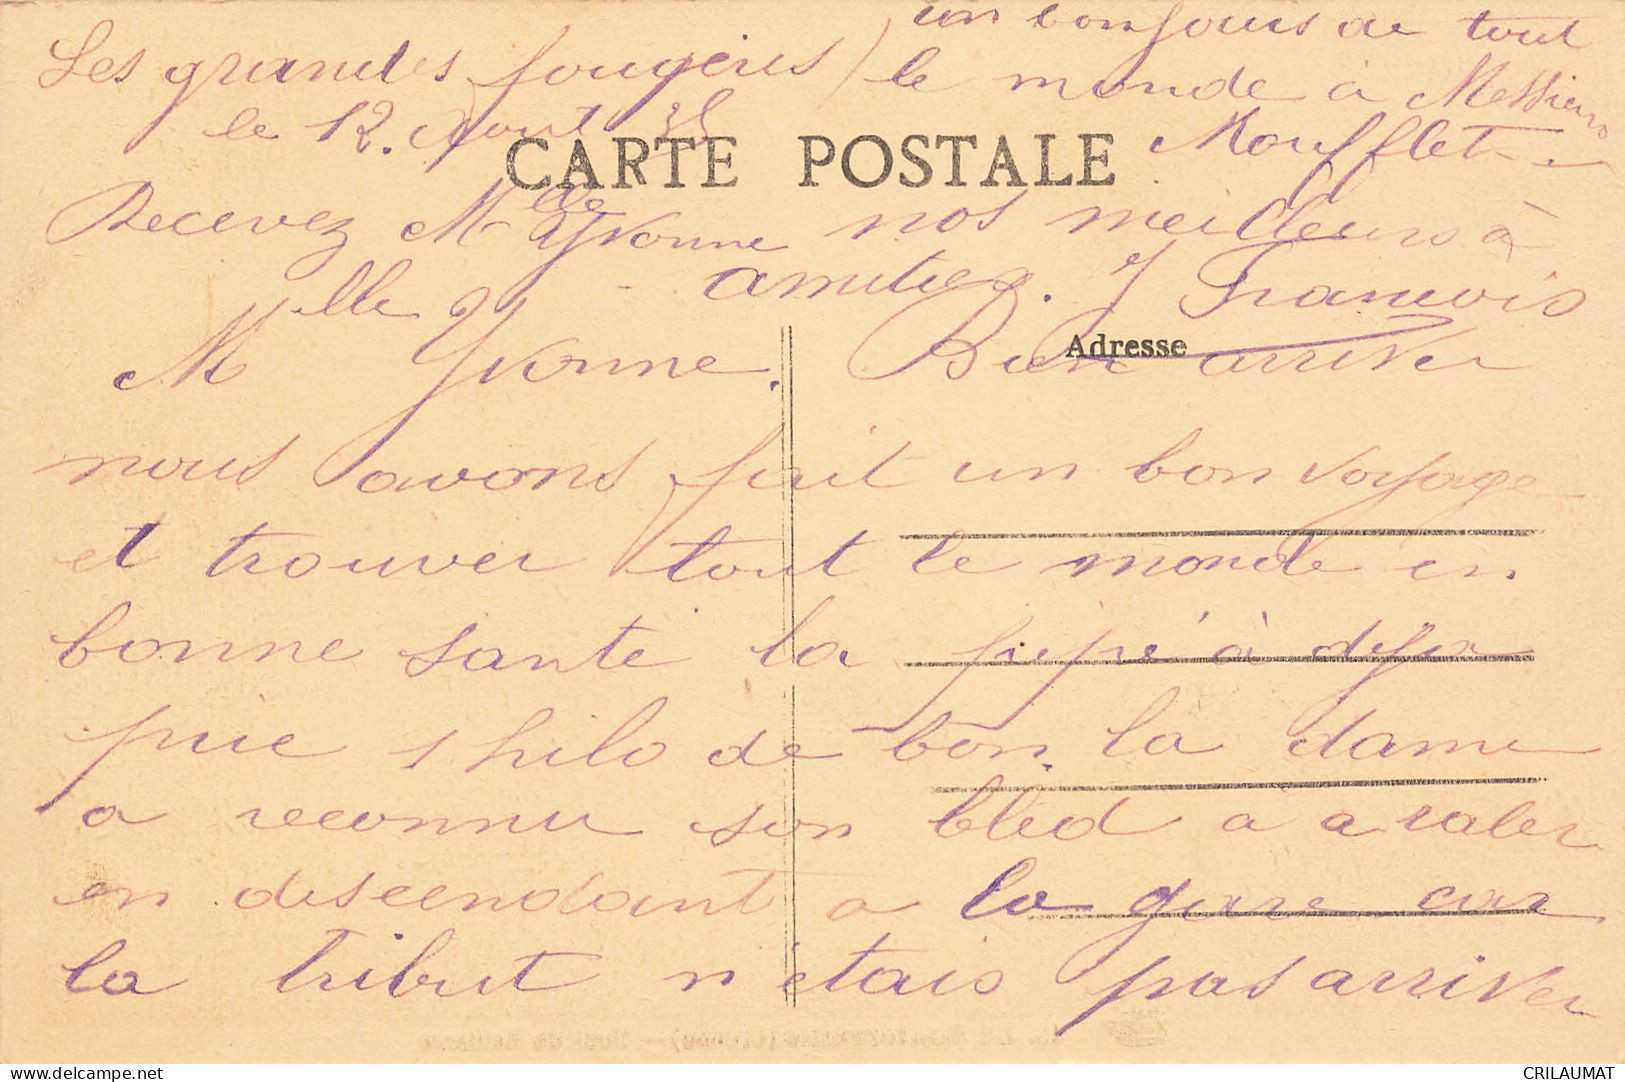 Les grandes fougères
le 12 Aout 35
un bonjours de tout
le monde à Messieurs
Moufflet
CARTE POSTALE
Recevez Mlle Yvonne nos meilleurs à
amitiez. J François
Mlle Yvonne. Bien arriver
Adresse
nous avons fait un bon voyage
et trouver tout le monde en
bonne santé la pépé à deja
prie 1 kilo de bon. la dame
a reconnu son bled a a raler
en descendant a la gare car
la tribut n'étais pas arriver
CRILAUMAT